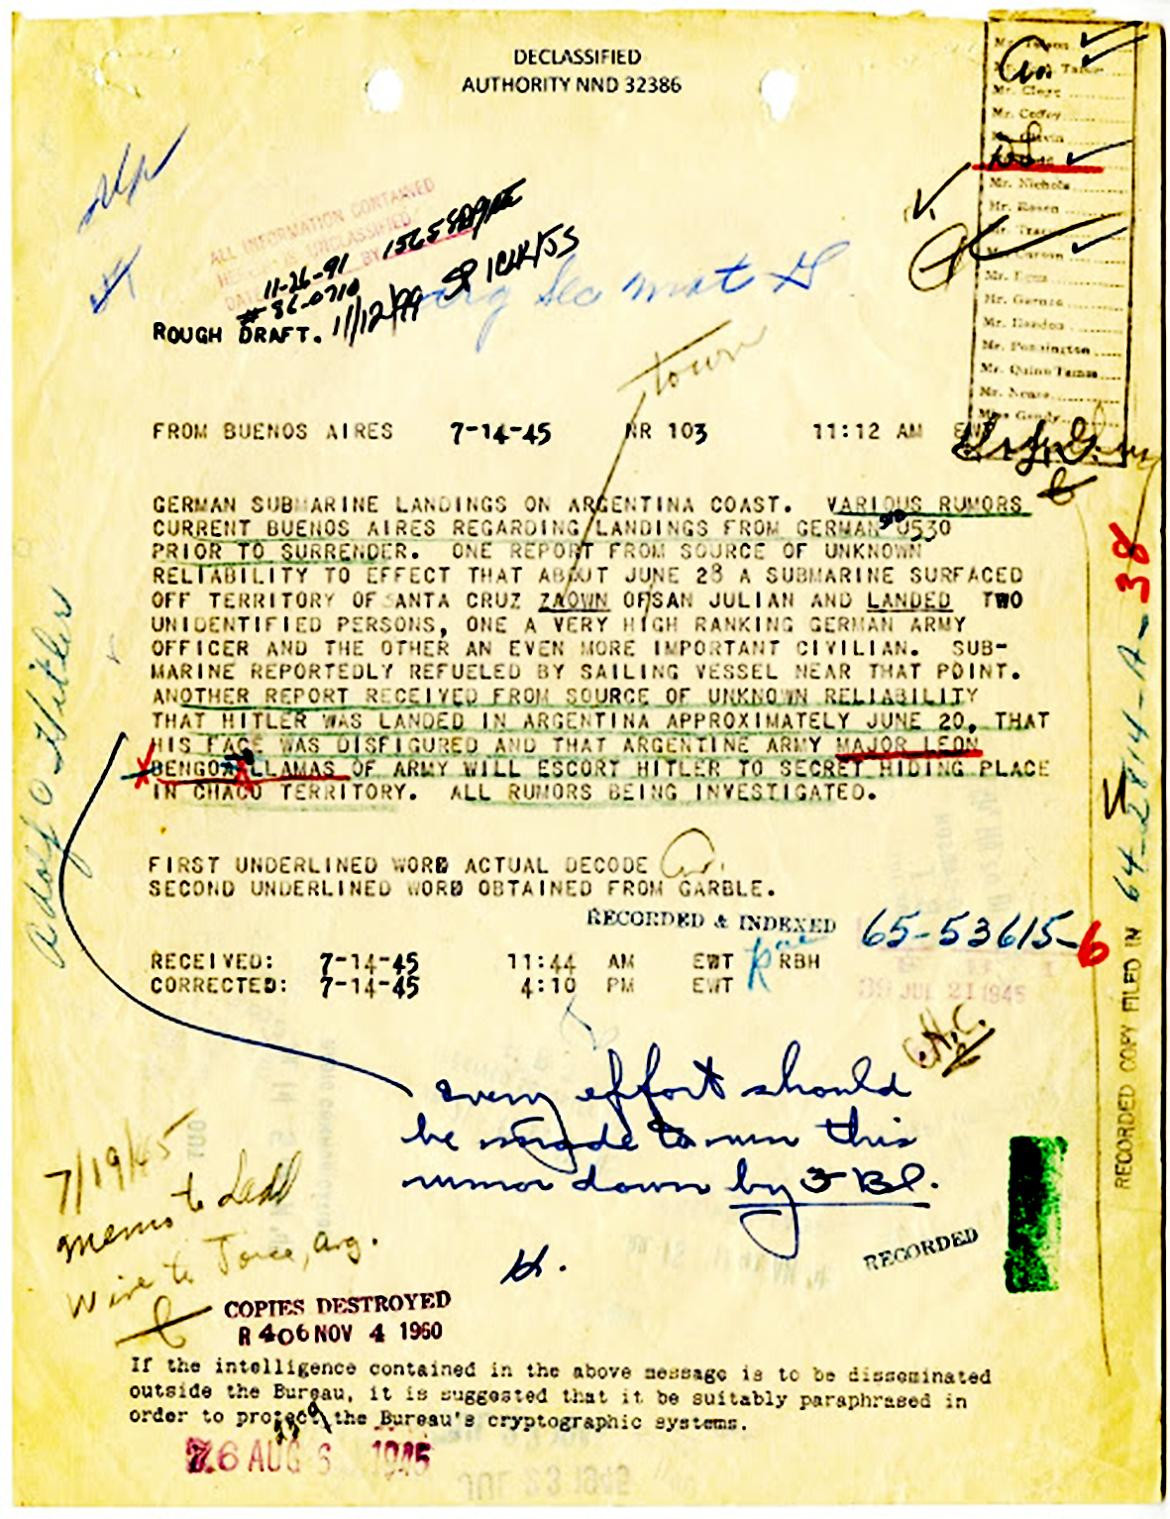 DECLASSIFIED
AUTHORITY NND 32386
Mr. Tolson
Mr. Clegg
Mr. Coffey
Mr. Nichols
Mr. Rosen
Mr. Tracy
Mr. Carson
Mr. Egan
Mr. Gurnea
Mr. Hendon
Mr. Pennington
Mr. Quinn Tamm
Mr. Nease
Miss Gandy
ALL INFORMATION CONTAINED
11-26-91
# 86-0710
11/12/99
ROUGH DRAFT.
town
FROM BUENOS AIRES 7-14-45 NR 103 11:12 AM
GERMAN SUBMARINE LANDINGS ON ARGENTINA COAST. VARIOUS RUMORS
CURRENT BUENOS AIRES REGARDING LANDINGS FROM GERMAN U530
PRIOR TO SURRENDER. ONE REPORT FROM SOURCE OF UNKNOWN
RELIABILITY TO EFFECT THAT ABOUT JUNE 28 A SUBMARINE SURFACED
OFF TERRITORY OF SANTA CRUZ ZAOWN OFSAN JULIAN AND LANDED TWO
UNIDENTIFIED PERSONS, ONE A VERY HIGH RANKING GERMAN ARMY
OFFICER AND THE OTHER AN EVEN MORE IMPORTANT CIVILIAN. SUB-
MARINE REPORTEDLY REFUELED BY SAILING VESSEL NEAR THAT POINT.
ANOTHER REPORT RECEIVED FROM SOURCE OF UNKNOWN RELIABILITY
THAT HITLER WAS LANDED IN ARGENTINA APPROXIMATELY JUNE 20, THAT
HIS FACE WAS DISFIGURED AND THAT ARGENTINE ARMY MAJOR LEON
BENGOA LLAMAS OF ARMY WILL ESCORT HITLER TO SECRET HIDING PLACE
IN CHACO TERRITORY. ALL RUMORS BEING INVESTIGATED.
Adolf Hitler
FIRST UNDERLINED WORD ACTUAL DECODE
SECOND UNDERLINED WORD OBTAINED FROM GARBLE.
RECORDED & INDEXED
65-53615-6
RECEIVED: 7-14-45 11:44 AM EWT RBH
CORRECTED: 7-14-45 4:10 PM EWT
JUL 21 1945
RECORDED COPY FILED IN 64-2814-A-38
every effort should
be made to run this
rumor down by FBI.
H.
RECORDED
7/19/45
memo to Ladd
Wire to Joice, Arg.
COPIES DESTROYED
R 406 NOV 4 1960
If the intelligence contained in the above message is to be disseminated
outside the Bureau, it is suggested that it be suitably paraphrased in
order to protect the Bureau's cryptographic systems.
76 AUG 6 1945